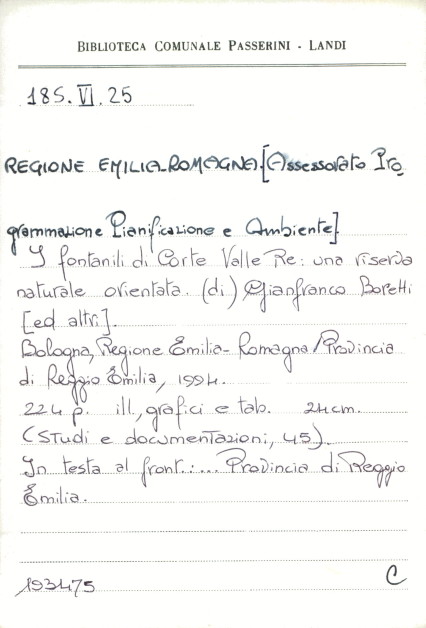 BIBLIOTECA COMUNALE PASSERINI - LANDI
185.VI.25
REGIONE EMILIA-ROMAGNA.[Assessorato Pro
grammazione Pianificazione e Ambiente]
I fontanili di Corte Valle Re: una riserva
naturale orientata. (di) Gianfranco Boretti
[ed altri].
Bologna, Regione Emilia-Romagna/Provincia
di Reggio Emilia, 1994.
224 p. ill., grafici e tab. 24cm.
(Studi e documentazioni, 45).
In testa al front.:... Provincia di Reggio
Emilia.
193475 C